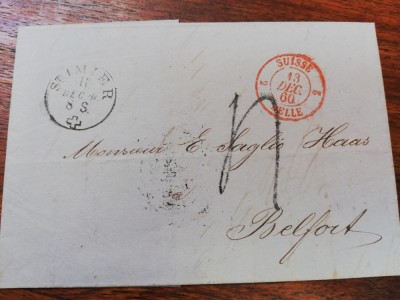 ST. IMIER
12
DEC. 6
8 S.
SUISSE
2 13 2
DEC.
60
DELLE
4
Monsieur E. Saglio Haas
à
Belfort